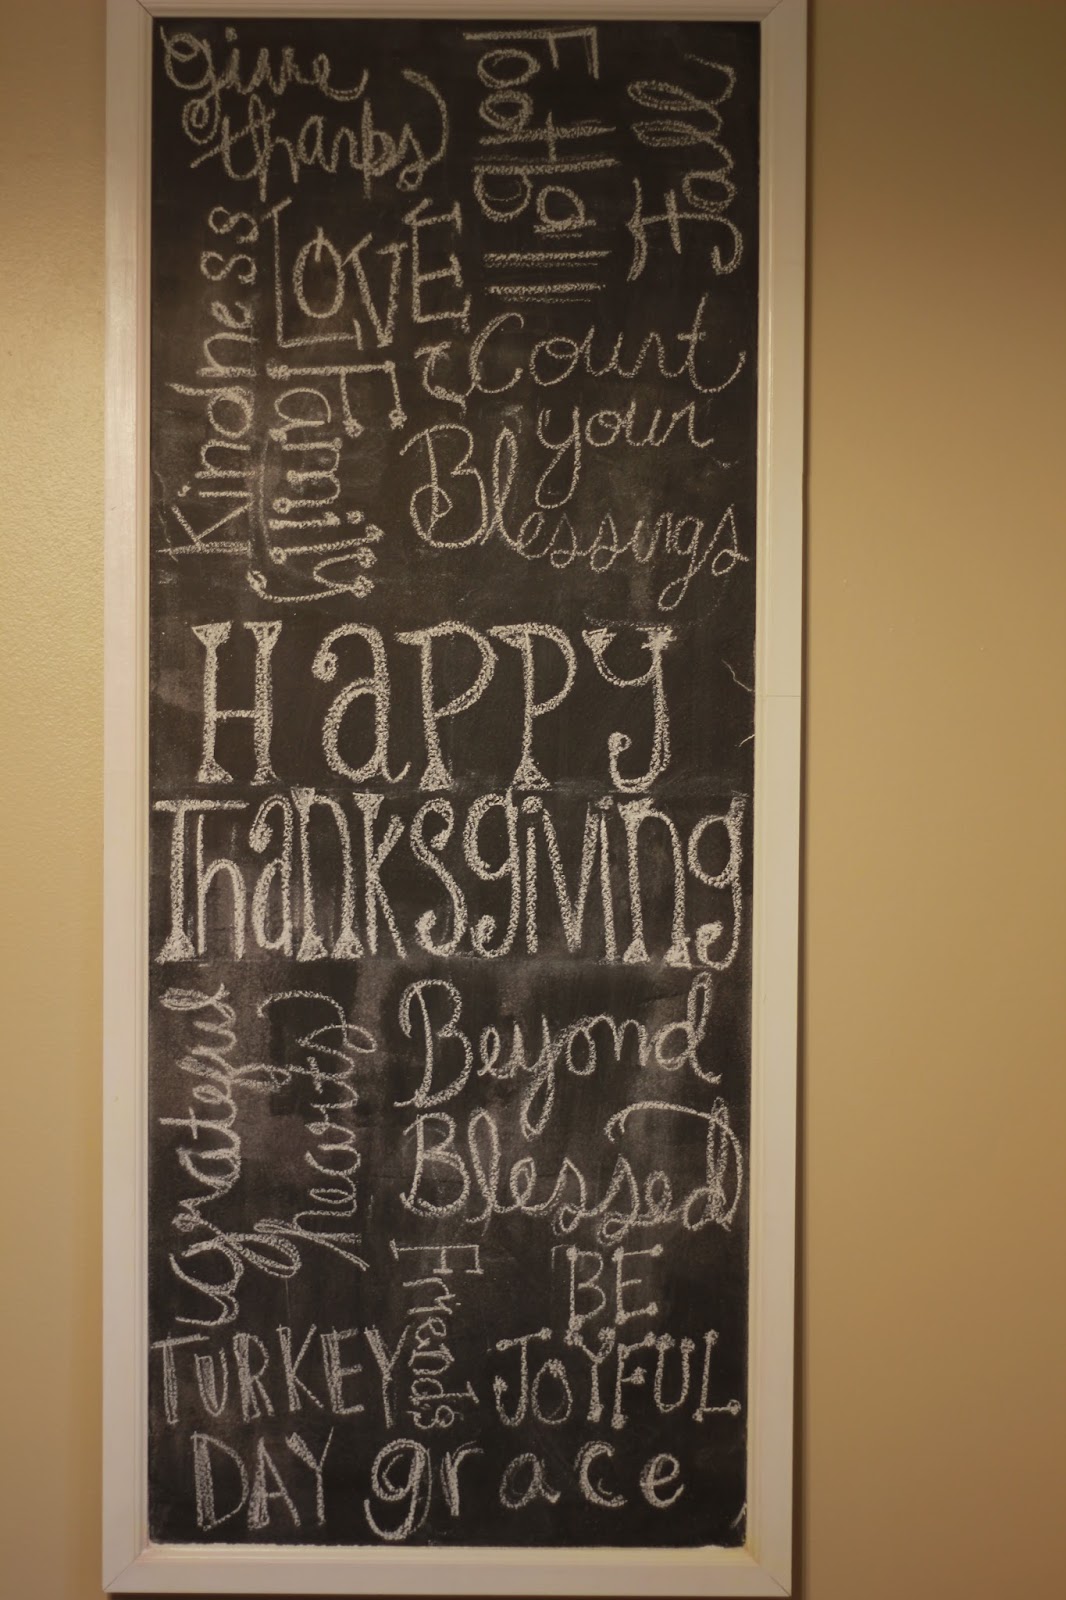 give
thanks
Football
Fall
Kindness
LOVE
Family
Count
your
Blessings
Happy
Thanksgiving
grateful
hearts
Beyond
Blessed
Friends
BE
JOYFUL
TURKEY
DAY
grace